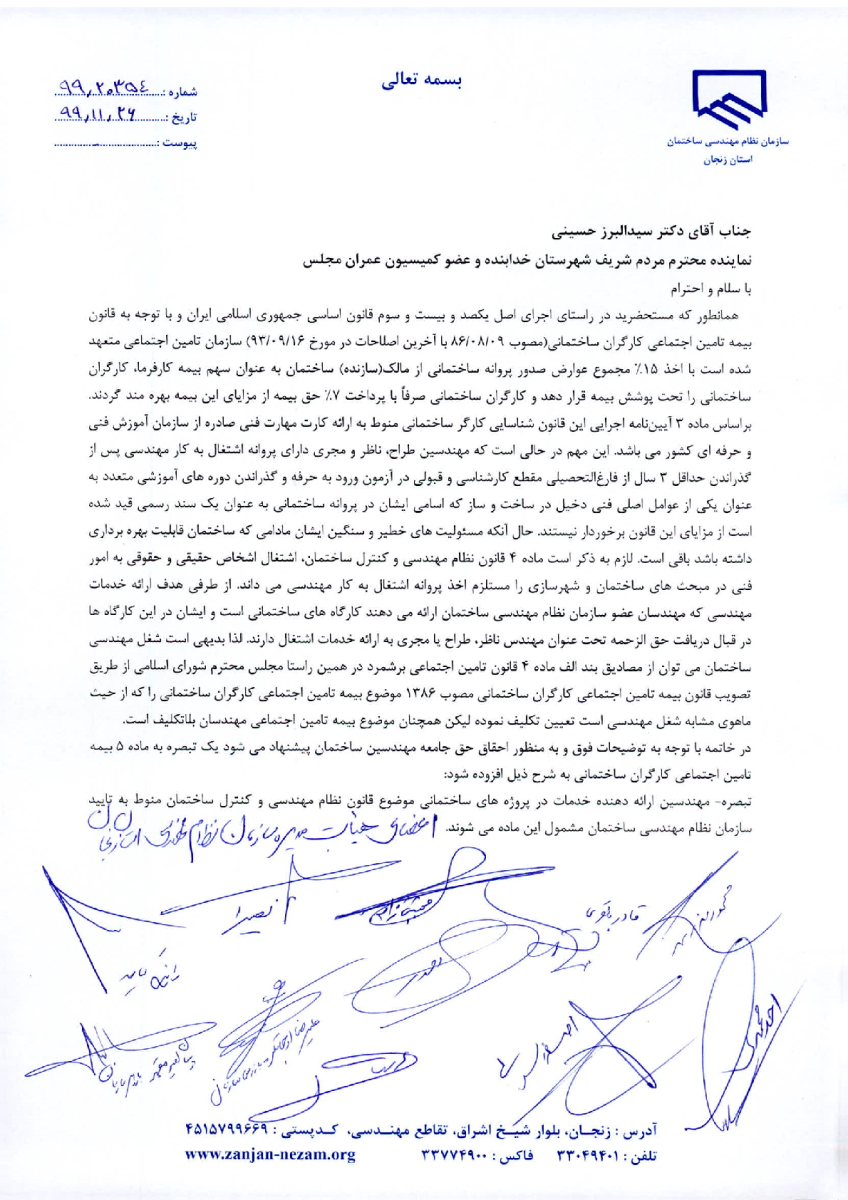 بسمه تعالی
سازمان نظام مهندسی ساختمان
استان زنجان
شماره : ۹۹٫۲۰۳۵٤
تاریخ : ۹۹٫۱۱٫۲۶
پیوست :
جناب آقای دکتر سیدالبرز حسینی
نماینده محترم مردم شریف شهرستان خدابنده و عضو کمیسیون عمران مجلس
با سلام و احترام
همانطور که مستحضرید در راستای اجرای اصل یکصد و بیست و سوم قانون اساسی جمهوری اسلامی ایران و با توجه به قانون
بیمه تامین اجتماعی کارگران ساختمانی(مصوب ۸۶/۰۸/۰۹ با آخرین اصلاحات در مورخ ۹۳/۰۹/۱۶) سازمان تامین اجتماعی متعهد
شده است با اخذ ۱۵٪ مجموع عوارض صدور پروانه ساختمانی از مالک(سازنده) ساختمان به عنوان سهم بیمه کارفرما، کارگران
ساختمانی را تحت پوشش بیمه قرار دهد و کارگران ساختمانی صرفاً با پرداخت ۷٪ حق بیمه از مزایای این بیمه بهره مند گردند.
براساس ماده ۳ آیین‌نامه اجرایی این قانون شناسایی کارگر ساختمانی منوط به ارائه کارت مهارت فنی صادره از سازمان آموزش فنی
و حرفه ای کشور می باشد. این مهم در حالی است که مهندسین طراح، ناظر و مجری دارای پروانه اشتغال به کار مهندسی پس از
گذراندن حداقل ۳ سال از فارغ‌التحصیلی مقطع کارشناسی و قبولی در آزمون ورود به حرفه و گذراندن دوره های آموزشی متعدد به
عنوان یکی از عوامل اصلی فنی دخیل در ساخت و ساز که اسامی ایشان در پروانه ساختمانی به عنوان یک سند رسمی قید شده
است از مزایای این قانون برخوردار نیستند. حال آنکه مسئولیت های خطیر و سنگین ایشان مادامی که ساختمان قابلیت بهره برداری
داشته باشد باقی است. لازم به ذکر است ماده ۴ قانون نظام مهندسی و کنترل ساختمان، اشتغال اشخاص حقیقی و حقوقی به امور
فنی در مبحث های ساختمان و شهرسازی را مستلزم اخذ پروانه اشتغال به کار مهندسی می داند. از طرفی هدف ارائه خدمات
مهندسی که مهندسان عضو سازمان نظام مهندسی ساختمان ارائه می دهند کارگاه های ساختمانی است و ایشان در این کارگاه ها
در قبال دریافت حق الزحمه تحت عنوان مهندس ناظر، طراح یا مجری به ارائه خدمات اشتغال دارند. لذا بدیهی است شغل مهندسی
ساختمان می توان از مصادیق بند الف ماده ۴ قانون تامین اجتماعی برشمرد در همین راستا مجلس محترم شورای اسلامی از طریق
تصویب قانون بیمه تامین اجتماعی کارگران ساختمانی مصوب ۱۳۸۶ موضوع بیمه تامین اجتماعی کارگران ساختمانی را که از حیث
ماهوی مشابه شغل مهندسی است تعیین تکلیف نموده لیکن همچنان موضوع بیمه تامین اجتماعی مهندسان بلاتکلیف است.
در خاتمه با توجه به توضیحات فوق و به منظور احقاق حق جامعه مهندسین ساختمان پیشنهاد می شود یک تبصره به ماده ۵ بیمه
تامین اجتماعی کارگران ساختمانی به شرح ذیل افزوده شود:
تبصره- مهندسین ارائه دهنده خدمات در پروژه های ساختمانی موضوع قانون نظام مهندسی و کنترل ساختمان منوط به تایید
سازمان نظام مهندسی ساختمان مشمول این ماده می شوند.
اعضای هیات مدیره سازمان نظام مهندسی استان زنجان
قادر باقری
احد محمدی
آدرس : زنجـان، بلوار شیـخ اشراق، تقاطع مهنـدسی، کـدپستی : ۴۵۱۵۷۹۹۶۶۹
تلفن : ۳۳۰۴۹۴۰۱ فاکس : ۳۳۷۷۴۹۰۰ www.zanjan-nezam.org